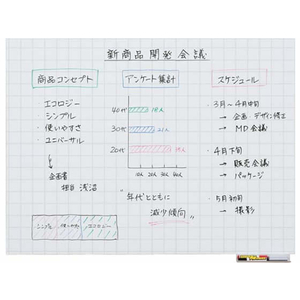 新商品開発会議
商品コンセプト
・エコロジー
・シンプル
・使いやすさ
・ユニバーサル
↓
企画書
担当 浅沼
シンプル 使いやすさ エコロジー
アンケート集計
40代 18人
30代 21人
20代
10人 20人 30人 40人
"年代とともに
減少傾向"
スケジュール
・3月〜4月中旬
→ 企画 デザイン修正
→ MD会議
・4月下旬
→ 販売会議
→ パッケージ
・5月初旬
→ 撮影